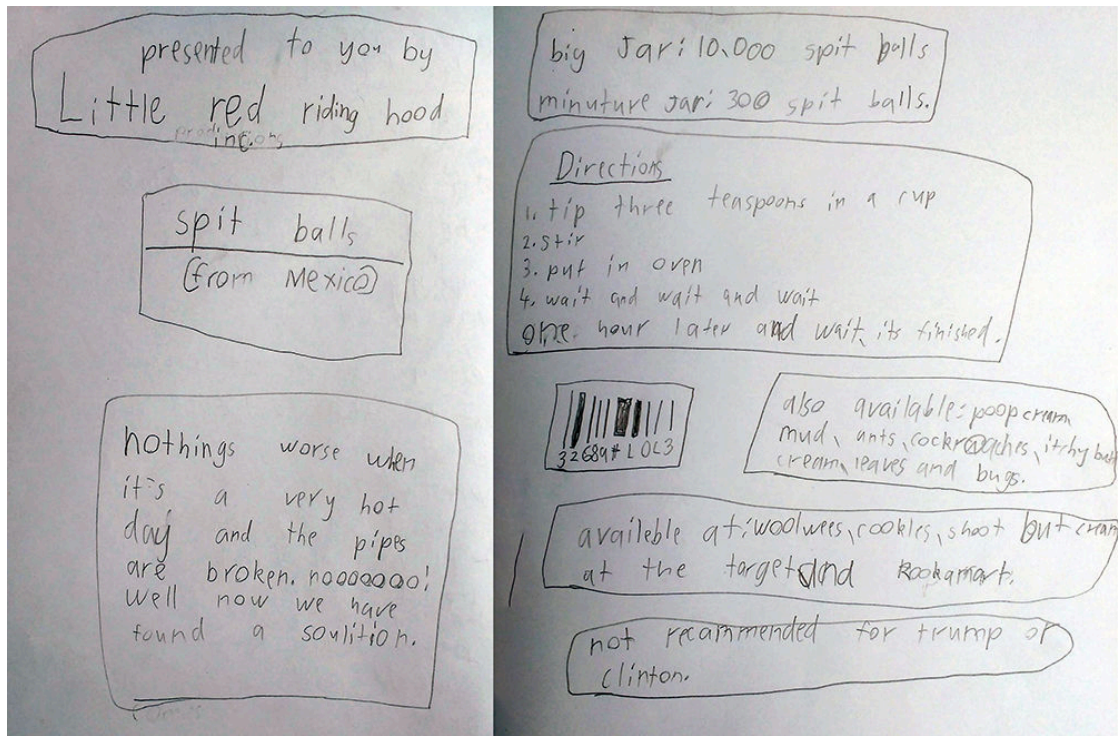 presented to you by
Little red riding hood
productions
inc.
spit balls
(from Mexico)
nothings worse when
it's a very hot
day and the pipes
are broken. nooooooo!
Well now we have
found a soulition.
big Jar: 10,000 spit balls
minuture Jar: 300 spit balls.
Directions
1. tip three teaspoons in a cup
2. stir
3. put in oven
4. wait and wait and wait
one hour later and wait, its finished.
32689#LOL3
also available: poop cream,
mud, ants, cockroaches, itchy butt
cream, leaves and bugs.
availeble at: woolwees, cookles, shoot but cream
at the target and kookamart.
not recammended for trump or
clinton.